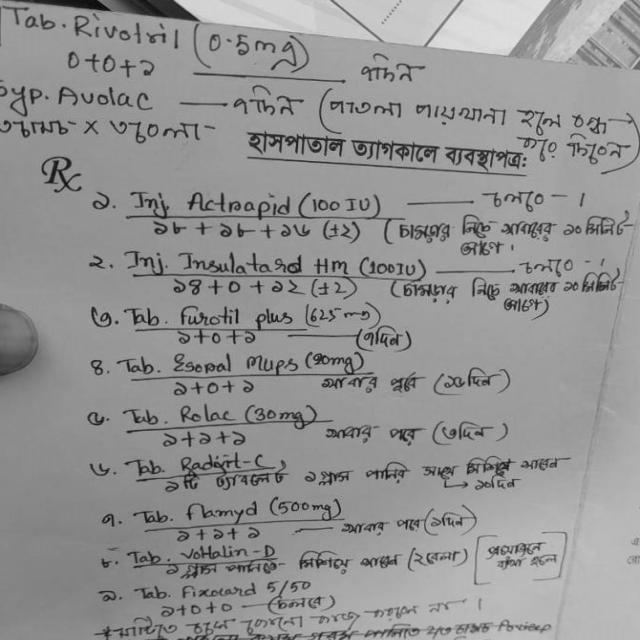 Tab. Rivotril (0.5mg)
০+০+১ ——— ৭দিন
Syp. Avolac —— ৭দিন (পাতলা পায়খানা হলে বন্ধ
৩চামচ × ৩বেলা করে দিবেন)
হাসপাতাল ত্যাগকালে ব্যবস্থাপত্র:
Rx
১. Inj. Actrapid (100 IU) —— চলবে - ।
১৮ + ১৮ + ১৬ (±2) (চামড়ার নিচে খাবারের ১০ মিনিট আগে।
২. Inj. Insulatard HM (100IU) —— চলবে - ।
১৪ + ০ + ১২ (±2) (চামড়ার নিচে খাবারের ১০ মিনিট আগে)
৩. Tab. Furotil plus (625mg)
১+০+১ —— (৭দিন)
৪. Tab. Esopal Mups (20mg)
১+০+১ খাবার পূর্বে (১৫দিন)
৫. Tab. Rolac (30mg)
১+১+১ খাবার পরে (৩দিন)
৬. Tab. Radirt-C
১টি ট্যাবলেট ১ গ্লাস পানির সাথে মিশিয়ে খাবেন
→ ১০দিন
৭. Tab. Flamyd (500mg)
১+১+১ —— খাবার পরে (৯দিন)
৮. Tab. Voltalin-D
১ গ্লাস পানিতে মিশিয়ে খাবেন (২বেলা) [প্রয়োজনে ব্যথা হলে]
৯. Tab. Fixocard 5/50
১+০+০ —— (চলবে)